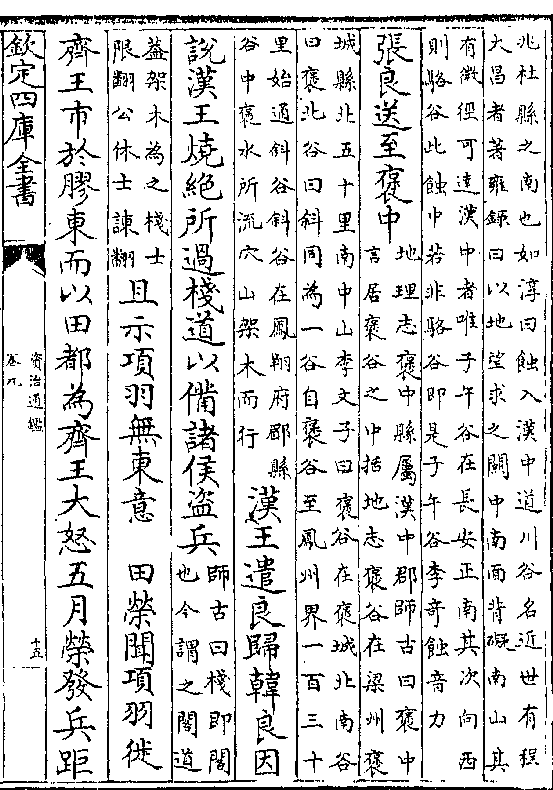 兆杜縣之南也如淳曰蝕入漢中道川谷名近世有程
大昌者著雍錄曰以地望求之關中南面背礙南山其
有微徑可達漢中者唯子午谷在長安正南其次向西
則駱谷此蝕中若非駱谷即是子午谷李奇蝕音力
張良送至褒中
地理志褒中縣屬漢中郡師古曰褒中
言居褒谷之中括地志褒谷在梁州褒
城縣北五十里南中山李文子曰褒谷在褒城北南谷
曰褒北谷曰斜同為一谷自褒谷至鳳州界一百三十
里始通斜谷斜谷在鳳翔府郿縣
谷中褒水所流穴山架木而行
漢王遣良歸韓良因
說漢王燒絶所過棧道以備諸侯盗兵
師古曰棧即閣
也今謂之閣道
蓋架木為之棧士
限翻公休士諫翻
且示項羽無東意 田榮聞項羽徙
齊王市於膠東而以田都為齊王大怒五月榮發兵距
欽定四庫全書
資治通鑑
卷九
十五